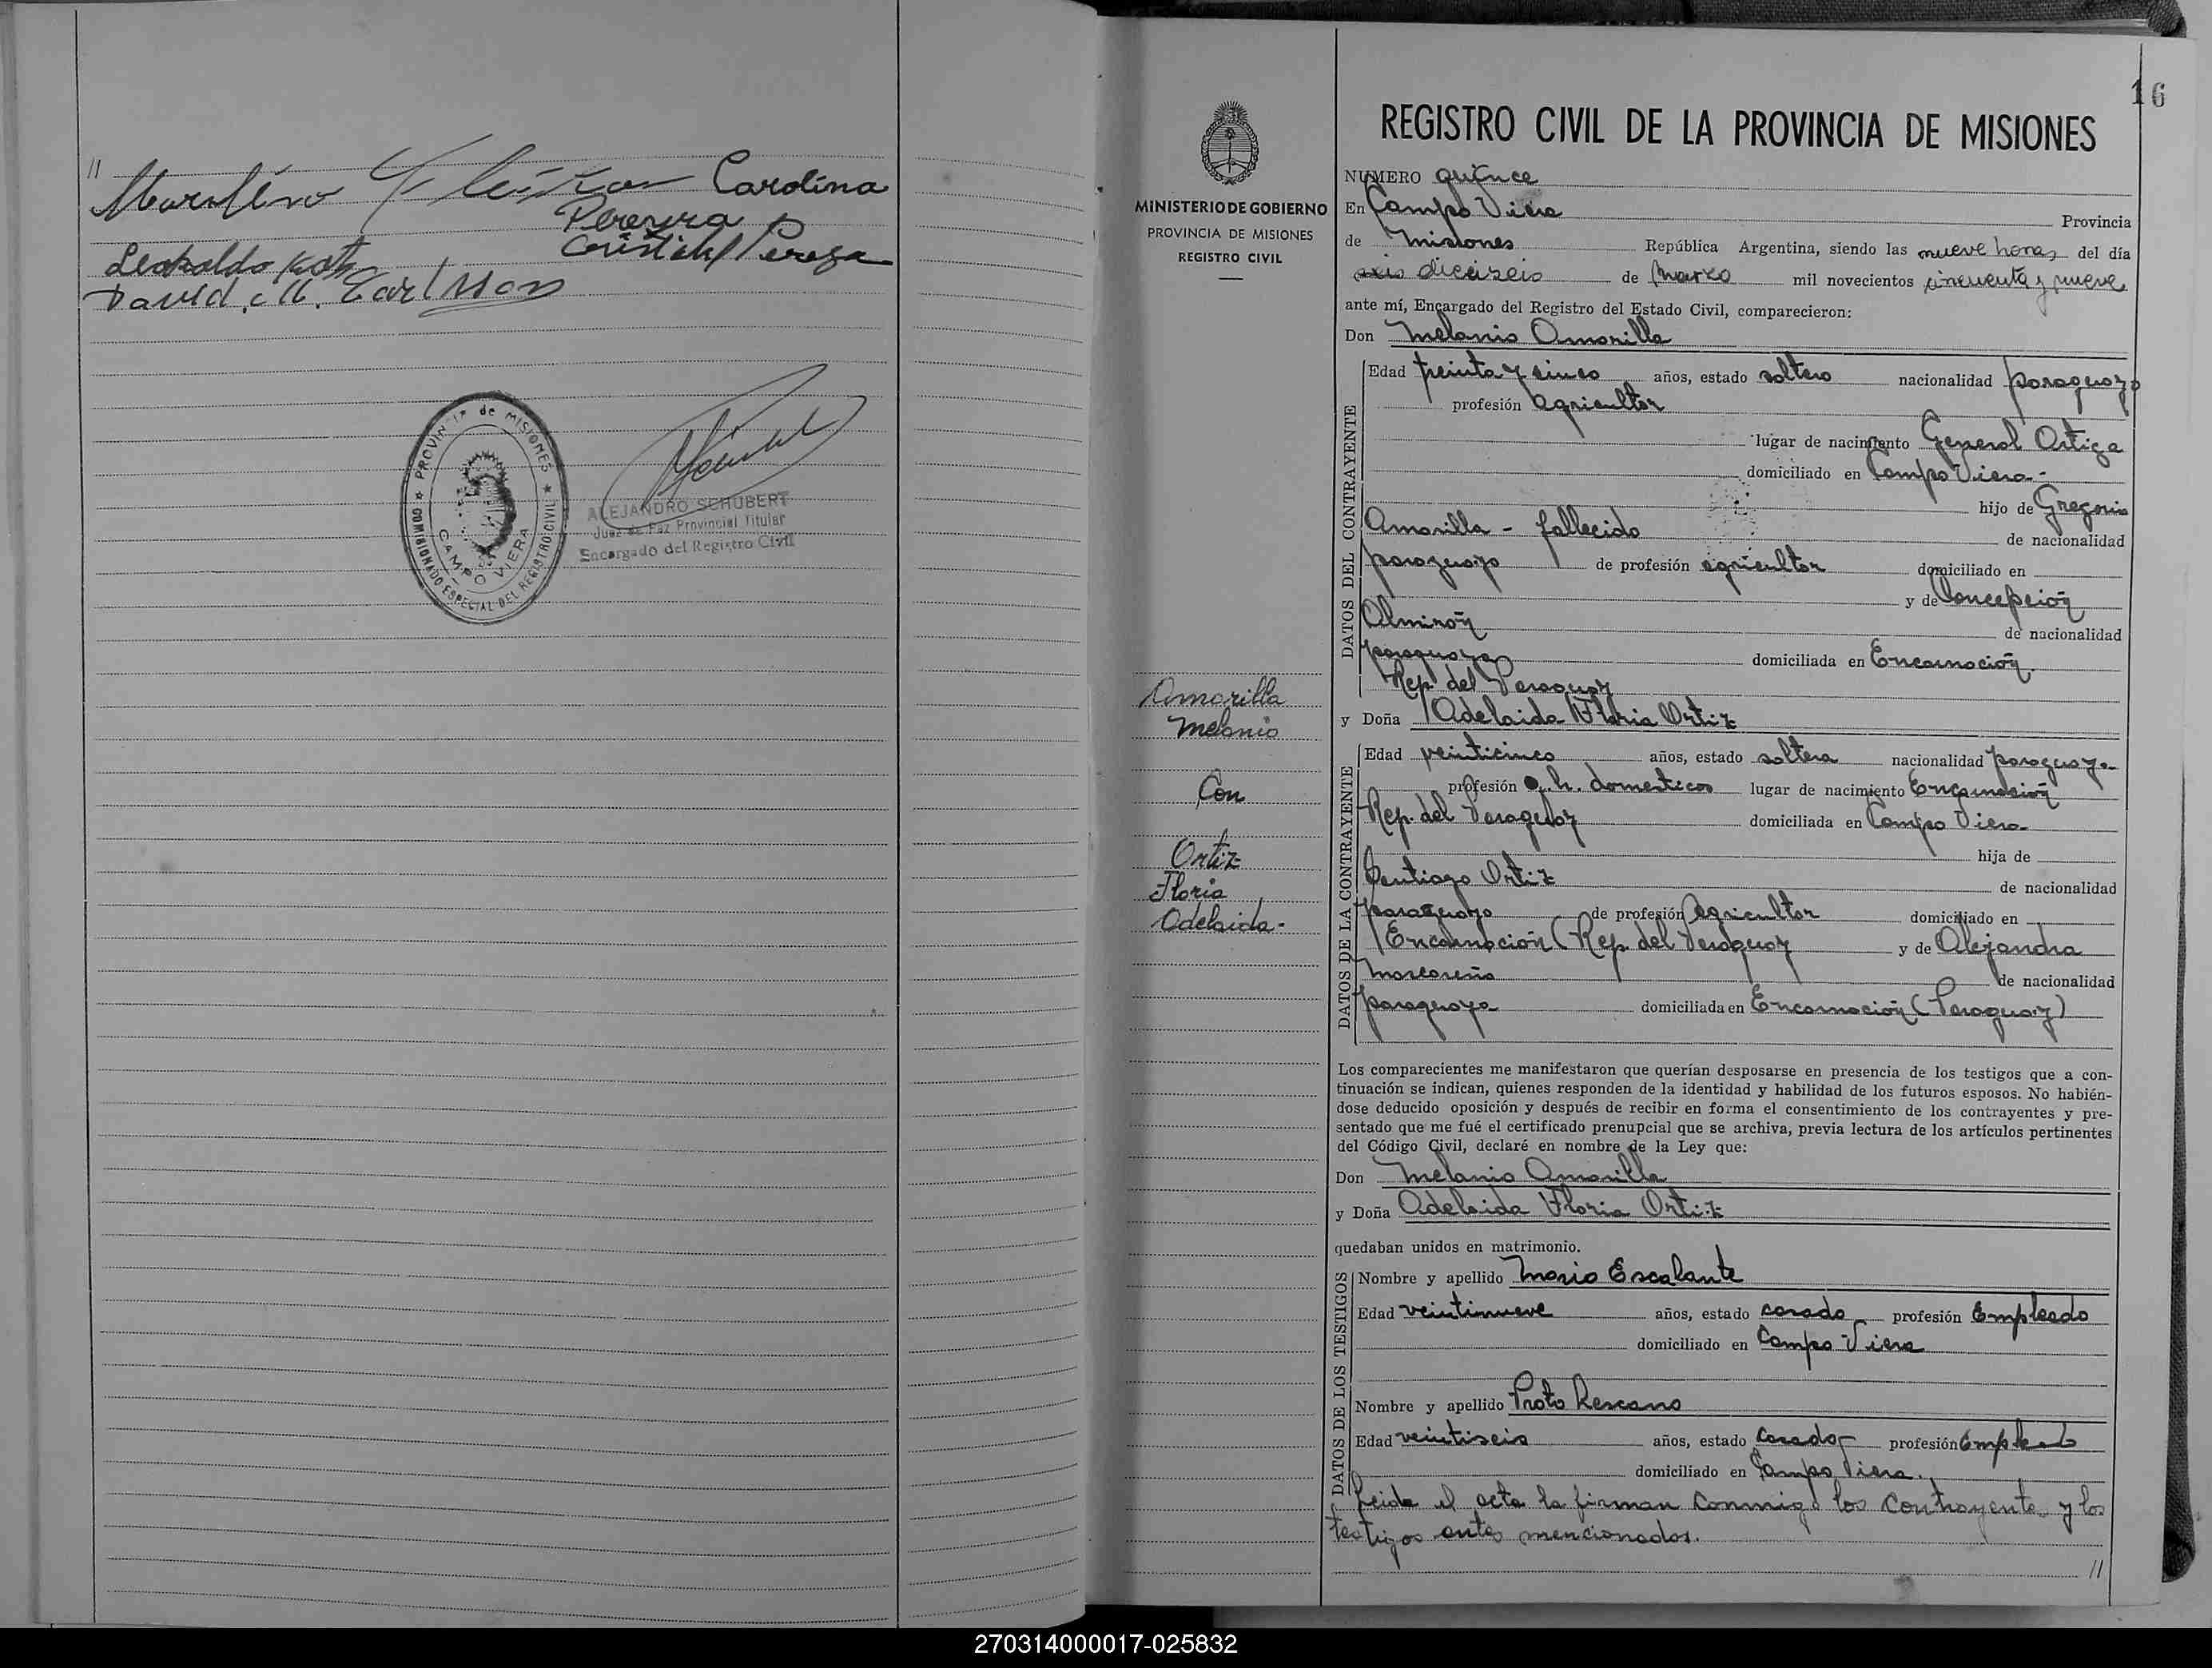 //
Carolina
Pereyra
Leopoldo Kotz
David. M. Carlsson
PROVINCIA de MISIONES
COMISIONADO ESPECIAL DEL REGISTRO CIVIL
CAMPO VIERA
ALEJANDRO SCHUBERT
Juez de Paz Provincial Titular
Encargado del Registro Civil
16
MINISTERIO DE GOBIERNO
PROVINCIA DE MISIONES
REGISTRO CIVIL
Amarilla
Melanio
Con
Ortiz
Floria
Adelaida-
REGISTRO CIVIL DE LA PROVINCIA DE MISIONES
NUMERO quince
En Campo Viera Provincia
de Misiones República Argentina, siendo las nueve horas del día
dieciseis de Marzo mil novecientos cincuenta y nueve
ante mí, Encargado del Registro del Estado Civil, comparecieron:
Don Melanio Amarilla
DATOS DEL CONTRAYENTE
Edad treinta y cinco años, estado soltero nacionalidad paraguayo
profesión agricultor
lugar de nacimiento General Artiga
domiciliado en Campo Viera-
hijo de Gregorio
Amarilla - fallecido de nacionalidad
paraguayo de profesión agricultor domiciliado en
y de Concepción
Almirón de nacionalidad
paraguaya domiciliada en Encarnación.
Rep. del Paraguay
y Doña Adelaida Floria Ortiz
DATOS DE LA CONTRAYENTE
Edad veinticinco años, estado soltera nacionalidad paraguaya
profesión q. h. domesticos lugar de nacimiento Encarnación
Rep. del Paraguay domiciliada en Campo Viera
hija de
Santiago Ortiz de nacionalidad
paraguayo de profesión agricultor domiciliado en
Encarnación (Rep. del Paraguay y de Alejandra
de nacionalidad
paraguaya domiciliada en Encarnación (Paraguay)
Los comparecientes me manifestaron que querían desposarse en presencia de los testigos que a con-
tinuación se indican, quienes responden de la identidad y habilidad de los futuros esposos. No habién-
dose deducido oposición y después de recibir en forma el consentimiento de los contrayentes y pre-
sentado que me fué el certificado prenupcial que se archiva, previa lectura de los artículos pertinentes
del Código Civil, declaré en nombre de la Ley que:
Don Melanio Amarilla
y Doña Adelaida Floria Ortiz
quedaban unidos en matrimonio.
DATOS DE LOS TESTIGOS
Nombre y apellido Mario Escalante
Edad veintinueve años, estado casado profesión Empleado
domiciliado en Campo Viera
Nombre y apellido Proto Lescano
Edad veintiseis años, estado casado profesión Empleado
domiciliado en Campo Viera.
Leida el acta la firman conmigo los contrayentes y los
testigos antes mencionados.
//
270314000017-025832